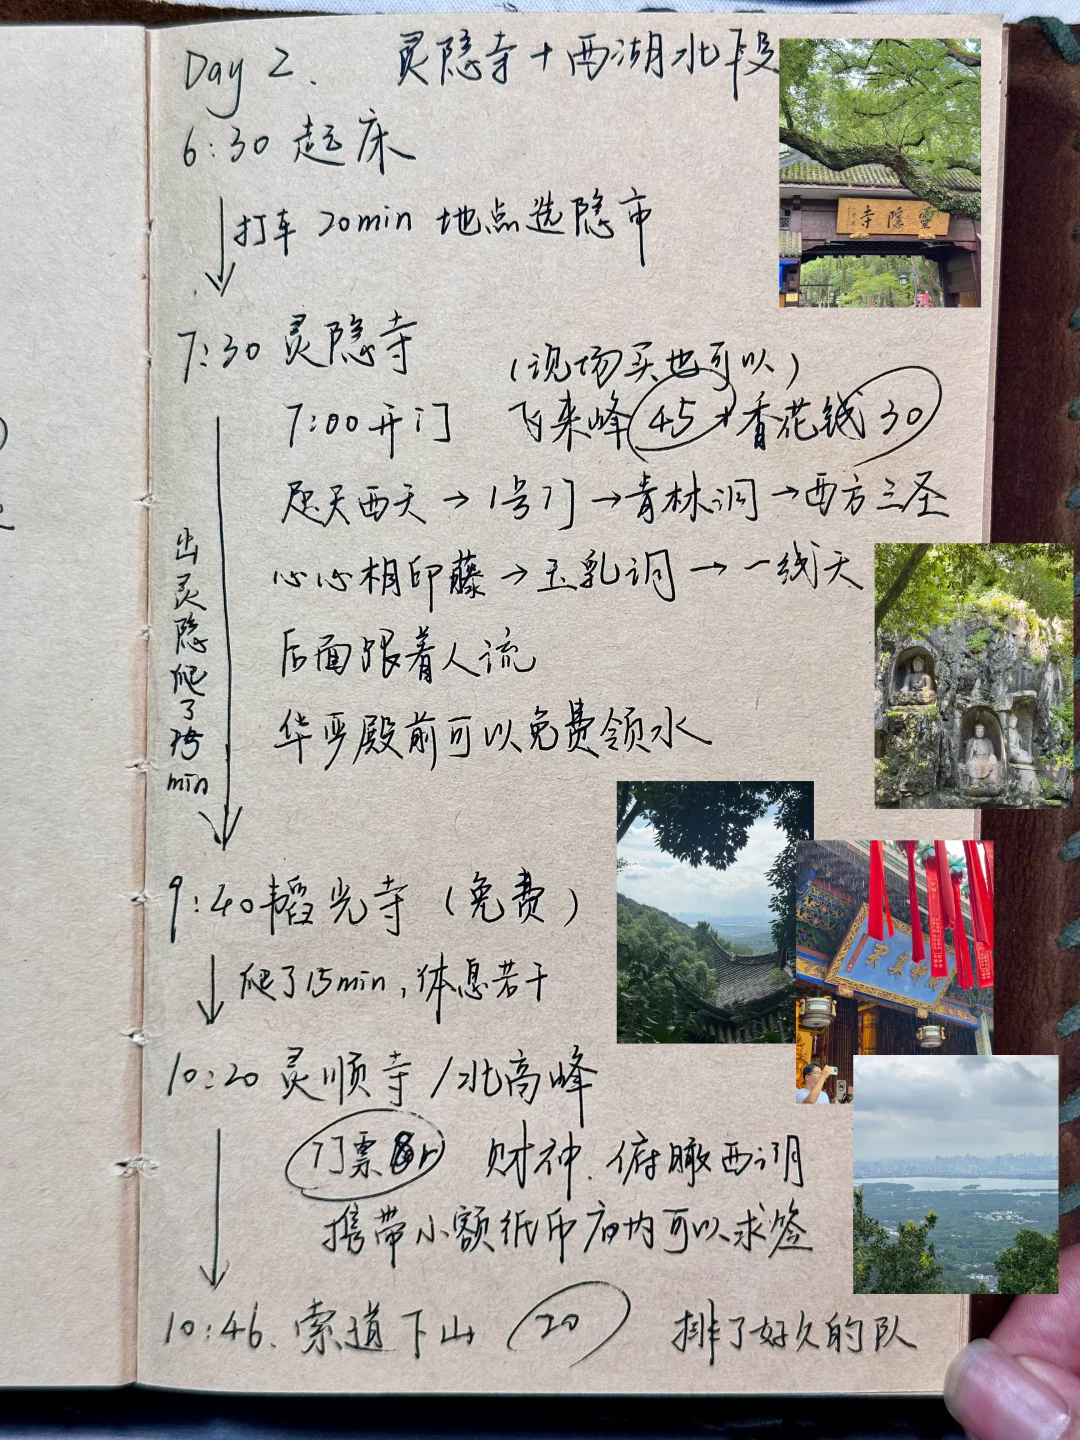 Day 2. 灵隐寺+西湖北段
6:30 起床
打车 20min 地点选隐市
靈隱寺
7:30 灵隐寺
(现场买也可以)
7:00开门 飞来峰 45 + 香花钱 30
咫尺西天→1号门→青林洞→西方三圣
心心相印藤→玉乳洞→一线天
后面跟着人流
华严殿前可以免费领水
出灵隐爬了
min
9:40 韬光寺(免费)
爬了15min,休息若干
10:20 灵顺寺/北高峰
门票 财神.俯瞰西湖
携带小额纸币庙内可以求签
10:46. 索道下山 20 排了好久的队